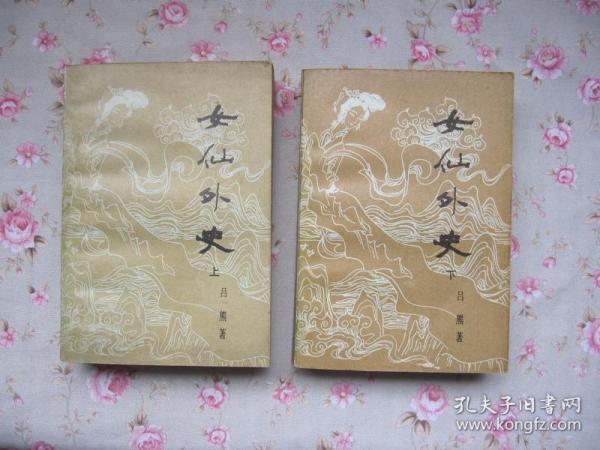 女仙外史
上
吕熊著
女仙外史
下
吕熊著
孔夫子旧书网
www.kongfz.com